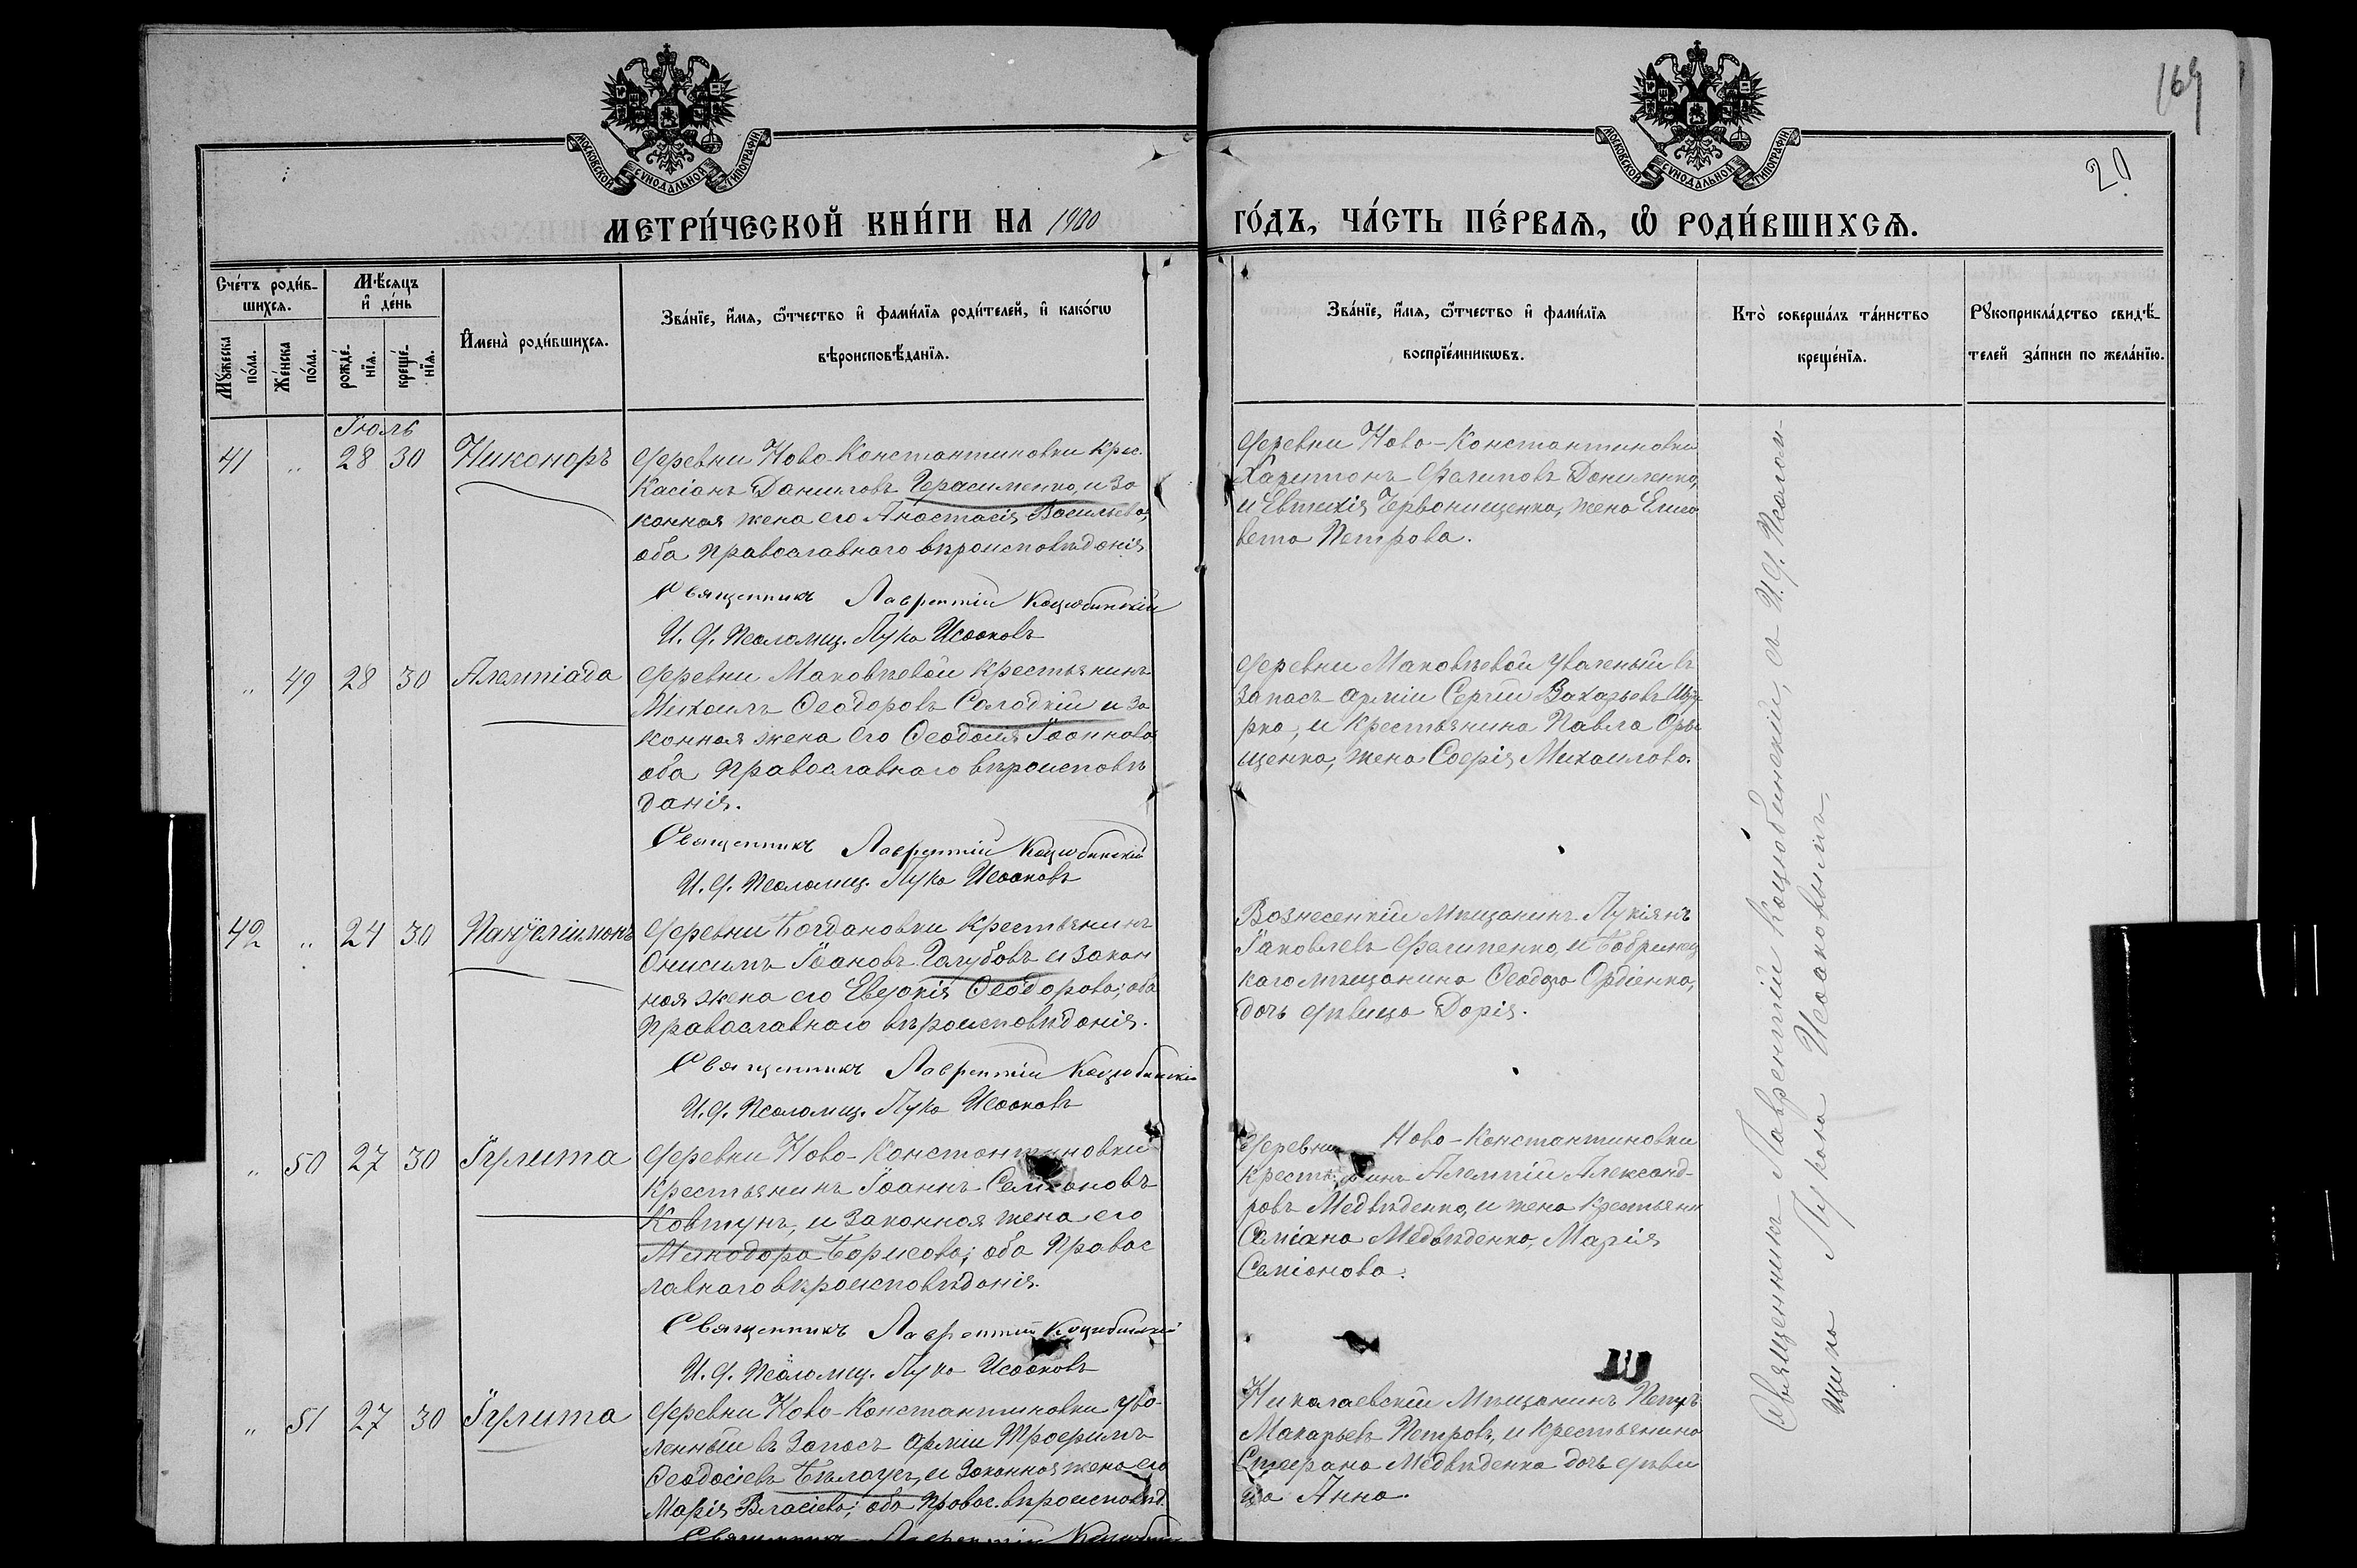 169
20
МОСКОВСКОЙ СѴНОДАЛЬНОЙ ТИПОГРАФІИ
МОСКОВСКОЙ СѴНОДАЛЬНОЙ ТИПОГРАФІИ
МЕТРИ́ЧЕСКОЙ КНИ́ГИ НА 1900
ГО́ДЪ, ЧА́СТЬ ПЕ́РВАѦ, Ѡ҆ РОДИ́ВШИХСѦ.
Сче́тъ роди́в-
шихсѧ.
Мꙋ́жеска по́ла.
Же́нска по́ла.
Мѣ́сѧцъ
и҆ де́нь
рожде́-
нїѧ.
креще́-
нїѧ.
И҆мена̀ роди́вшихсѧ.
Зва́нїе, и҆́мѧ, ѻ҆́тчество и҆ фами́лїѧ роди́телей, и҆ како́гѡ
вѣроисповѣ́данїѧ.
Зва́нїе, и҆́мѧ, ѻ҆́тчество и҆ фами́лїѧ
воспрїе́мникѡвъ.
Кто̀ соверша́лъ та́инство
креще́нїѧ.
Рꙋкоприкла́дство свидѣ́-
телей за́писи по жела́нїю.
Іюль
41 " 28 30 Никоноръ
деревни Ново-Константиновки крес.
Касіанъ Даниловъ Герасименко, и за
конная жена его Анастасія Васильева,
оба православнаго вѣроисповѣданія
Священникъ Лаврентій Коцюбинскій
И. д. Псаломщ. Лука Исааковъ
деревни Ново-Константиновки
Харитонъ Филиповъ Даниленко,
и Евтихія Червонищенка, жена Елиса
вета Петрова.
" 49 28 30 Алемпіада
деревни Маковѣевой крестьянинъ
Михаилъ Ѳеодоровъ Солодкій и за
конная жена его Ѳеодосія Іоаннова
оба православнаго вѣроисповѣ
данія.
Священникъ Лаврентій Коцюбинскій
И. д. Псаломщ. Лука Исааковъ
деревни Маковѣевой уволеный въ
запасъ арміи Сергій Захарьевъ
рка, и крестьянина Павла
щенка, жена Софія Михаилова.
42 " 24 30 Панꙋелиімонъ
деревни Богдановки крестьянинъ
Онисимъ Іоановъ Голубовъ и закон
ная жена его Евдокія Ѳеодорова; оба
православнаго вѣроисповѣданія.
Священникъ Лаврентій Коцюбинскій
И. д. Псаломщ. Лука Исааковъ
Вознесенкій мѣщанинъ Лукіянъ
Іаковлевъ Филипенко, и Бобринец
каго мѣщанина Ѳеодора Ордіенка,
дочь дѣвица Дарія.
" 50 27 30 Іулита
деревни Ново-Константиновки
крестьянинъ Іоаннъ Семіоновъ
Ковтунъ, и законная жена его
Минодора Борисова; оба правос
лавнаго вѣроисповѣданія.
Священникъ Лаврентій Коцюбинскій
И. д. Псаломщ. Лука Исааковъ
деревни Ново-Константиновки
Алемпій Александ-
ровъ Медвѣденко, и жена крестьяни
Семіана Медвѣденка, Марія
Семіонова.
" 51 27 30 Іулита
деревни Ново-Константиновки уво-
ленный въ запасъ арміи Трофимъ
Ѳеодосіевъ Бѣлоусъ, и законная жена его
Марія Власіева; оба правос. вѣроисповѣд.
Священникъ Лаврентій Коцюбин
Николаевскій мѣщанинъ Петръ
Макарьевъ Петровъ, и крестьянина
Стефана Медвѣденка дочь дѣви
ца Анна.
Священникъ Лаврентій Коцюбинскій, съ и. д. Псалом-
щика Лукою Исааковымъ.